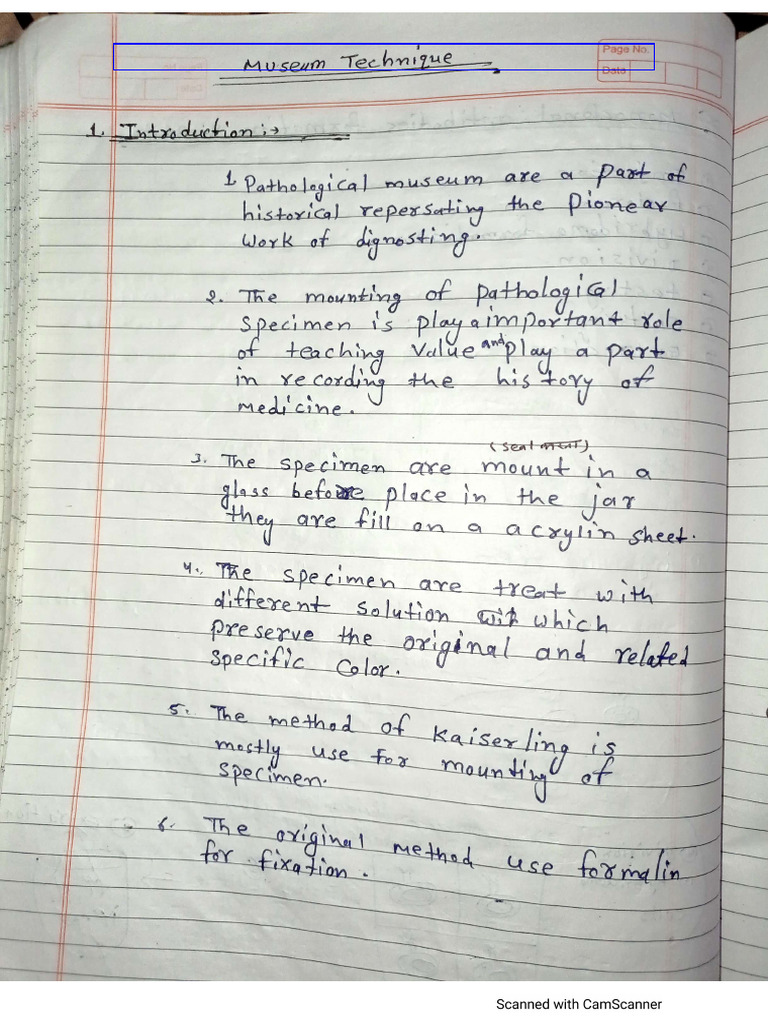 Museum Technique
Page No.
Date
1. Introduction :→
1. Pathological museum are a part of
historical repersating the pionear
work of dignosting.
2. The mounting of pathological
specimen is play a important role
of teaching value and play a part
in recording the history of
medicine.
(seal
3. The specimen are mount in a
glass before place in the jar
they are fill on a acrylin sheet.
4. The specimen are treat with
different solution which
preserve the original and related
specific color.
5. The method of kaiserling is
mostly use for mounting of
specimen.
6. The original method use formalin
for fixation.
Scanned with CamScanner